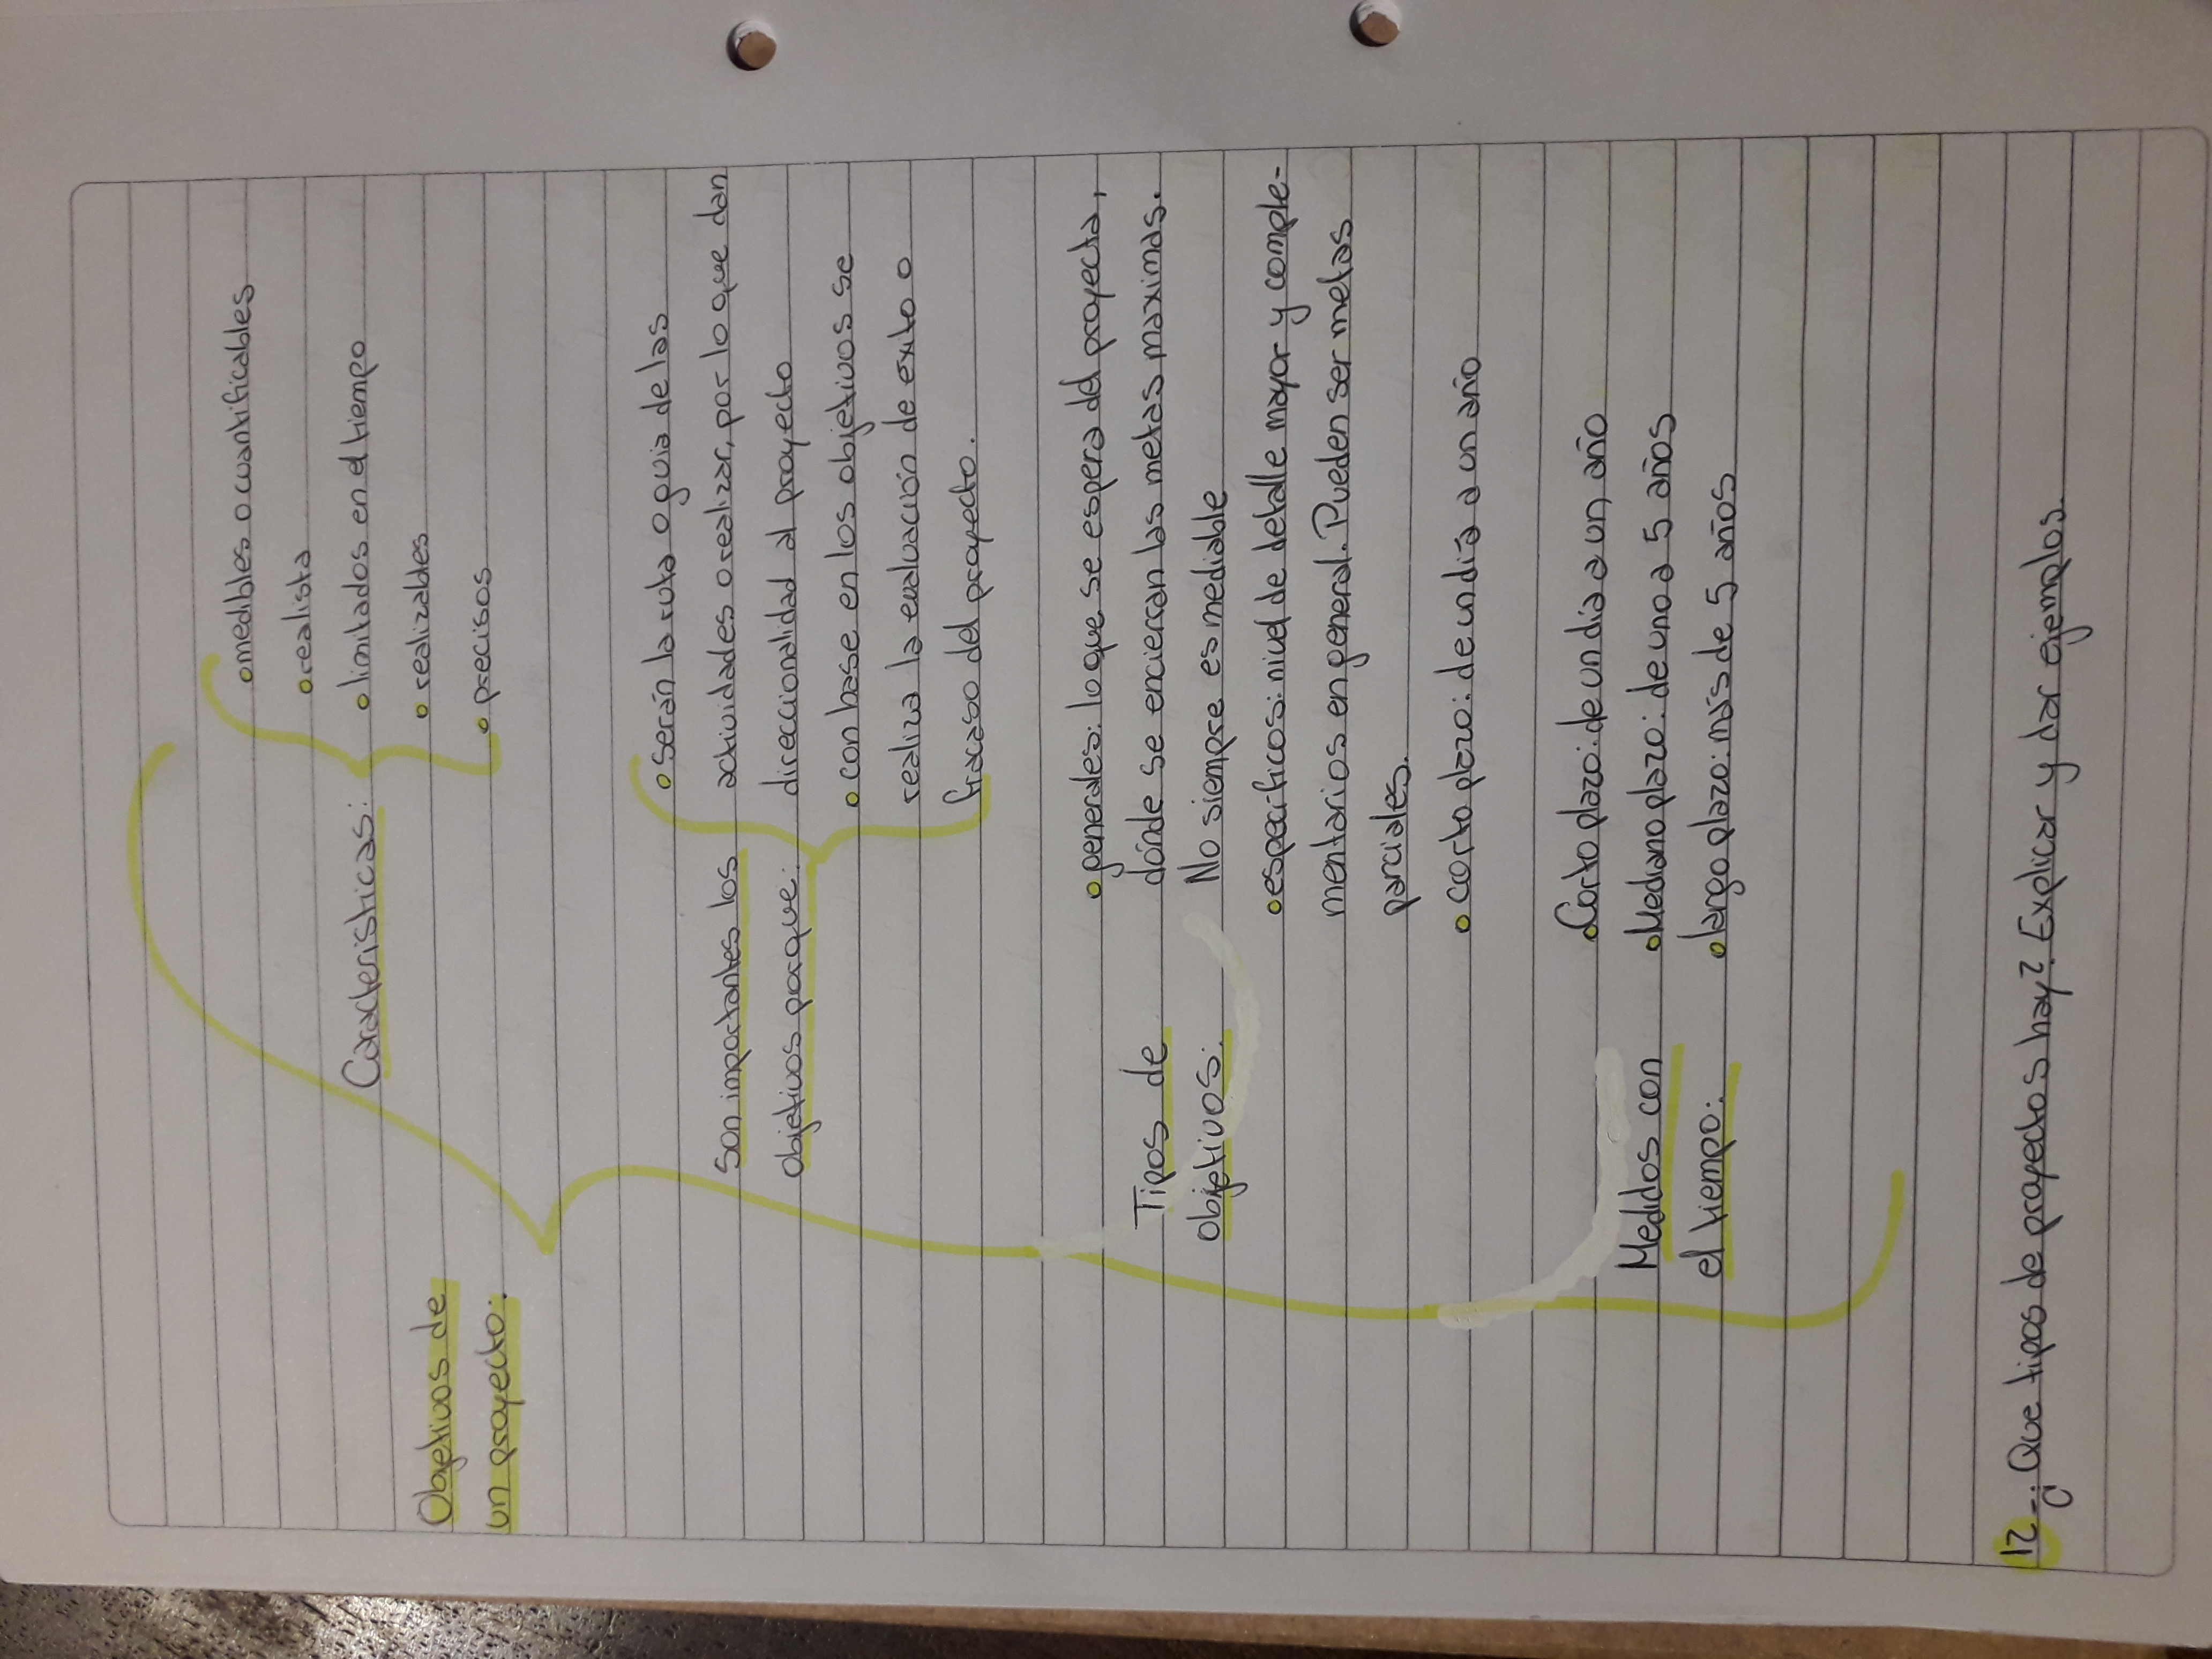 Objetivos de
un proyecto:
Caracteristicas:
• medibles o cuantificables
• realista
• limitados en el tiempo
• realizables
• precisos
Son importantes los
objetivos porque:
• Serán la ruta o guia de las
actividades o realizar, por lo que dan
direccionalidad al proyecto
• con base en los objetivos se
realiza la evaluación de exito o
fracaso del proyecto.
Tipos de
objetivos:
• generales: lo que se espera del proyecto,
dónde se encierran las metas maximas.
No siempre es mediable
• especificos: nivel de detalle mayor y comple-
mentarios en general. Pueden ser metas
parciales.
• corto plazo: de un dia a un año
Medidos con
el tiempo:
• Corto plazo: de un dia a un año
• Mediano plazo: de uno a 5 años
• largo plazo: más de 5 años
12-. ¿Que tipos de proyectos hay? Explicar y dar ejemplos.